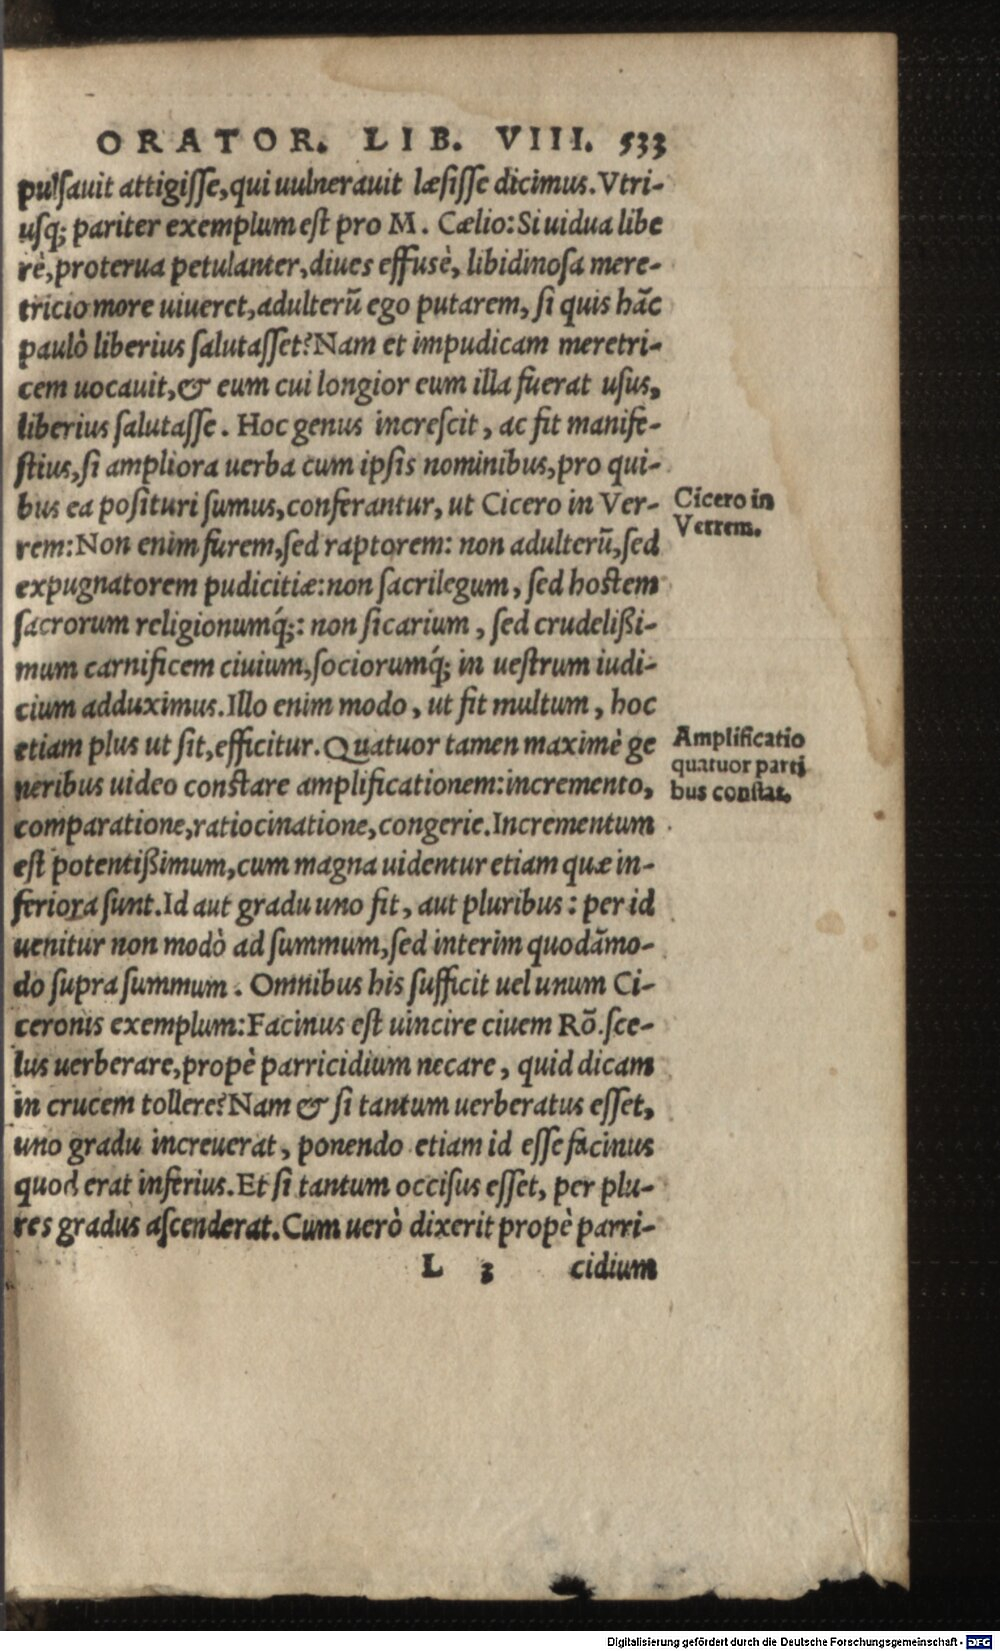 ORATOR. LIB. VIII. 533
pulsauit attigisse, qui uulnerauit læsisse dicimus. Vtri-
usq; pariter exemplum est pro M. Cælio: Si uidua libe
rè, proterua petulanter, diues effusè, libidinosa mere-
tricio more uiueret, adulterũ ego putarem, si quis hãc
paulò liberius salutasset? Nam et impudicam meretri-
cem uocauit, & eum cui longior cum illa fuerat usus,
liberius salutasse. Hoc genus increscit, ac fit manife-
stius, si ampliora uerba cum ipsis nominibus, pro qui-
bus ea posituri sumus, conferantur, ut Cicero in Ver-
rem: Non enim furem, sed raptorem: non adulterũ, sed
expugnatorem pudicitiæ: non sacrilegum, sed hostem
sacrorum religionumq́;: non sicarium, sed crudelißi-
mum carnificem ciuium, sociorumq́; in uestrum iudi-
cium adduximus. Illo enim modo, ut fit multum, hoc
etiam plus ut sit, efficitur. Quatuor tamen maximè ge
neribus uideo constare amplificationem: incremento,
comparatione, ratiocinatione, congerie. Incrementum
est potentißimum, cum magna uidentur etiam quæ in-
feriora sunt. Id aut gradu uno fit, aut pluribus: per id
uenitur non modò ad summum, sed interim quodãmo-
do supra summum. Omnibus his sufficit uel unum Ci-
ceronis exemplum: Facinus est uincire ciuem Rõ. sce-
lus uerberare, propè parricidium necare, quid dicam
in crucem tollere? Nam & si tantum uerberatus esset,
uno gradu increuerat, ponendo etiam id esse facinus
quod erat inferius. Et si tantum occisus esset, per plu-
res gradus ascenderat. Cum uerò dixerit propè parri-
L 3 cidium
Cicero in
Verrem.
Amplificatio
quatuor parti
bus constat.
Digitalisierung gefördert durch die Deutsche Forschungsgemeinschaft - DFG